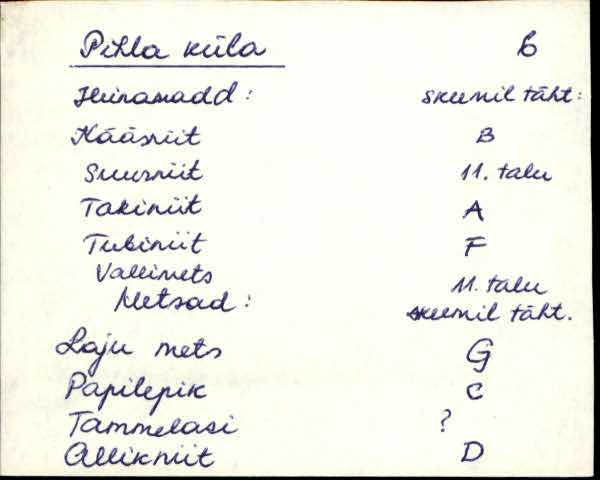 Pihla küla 6
Heinamaad: skeemil täht:
Kääsniit B
Suurniit 11. talu
Takiniit A
Tubiniit F
Vallimets 11. talu
Metsad: skeemil täht.
Laju mets G
Papilepik C
Tammelasi ?
Allikniit D